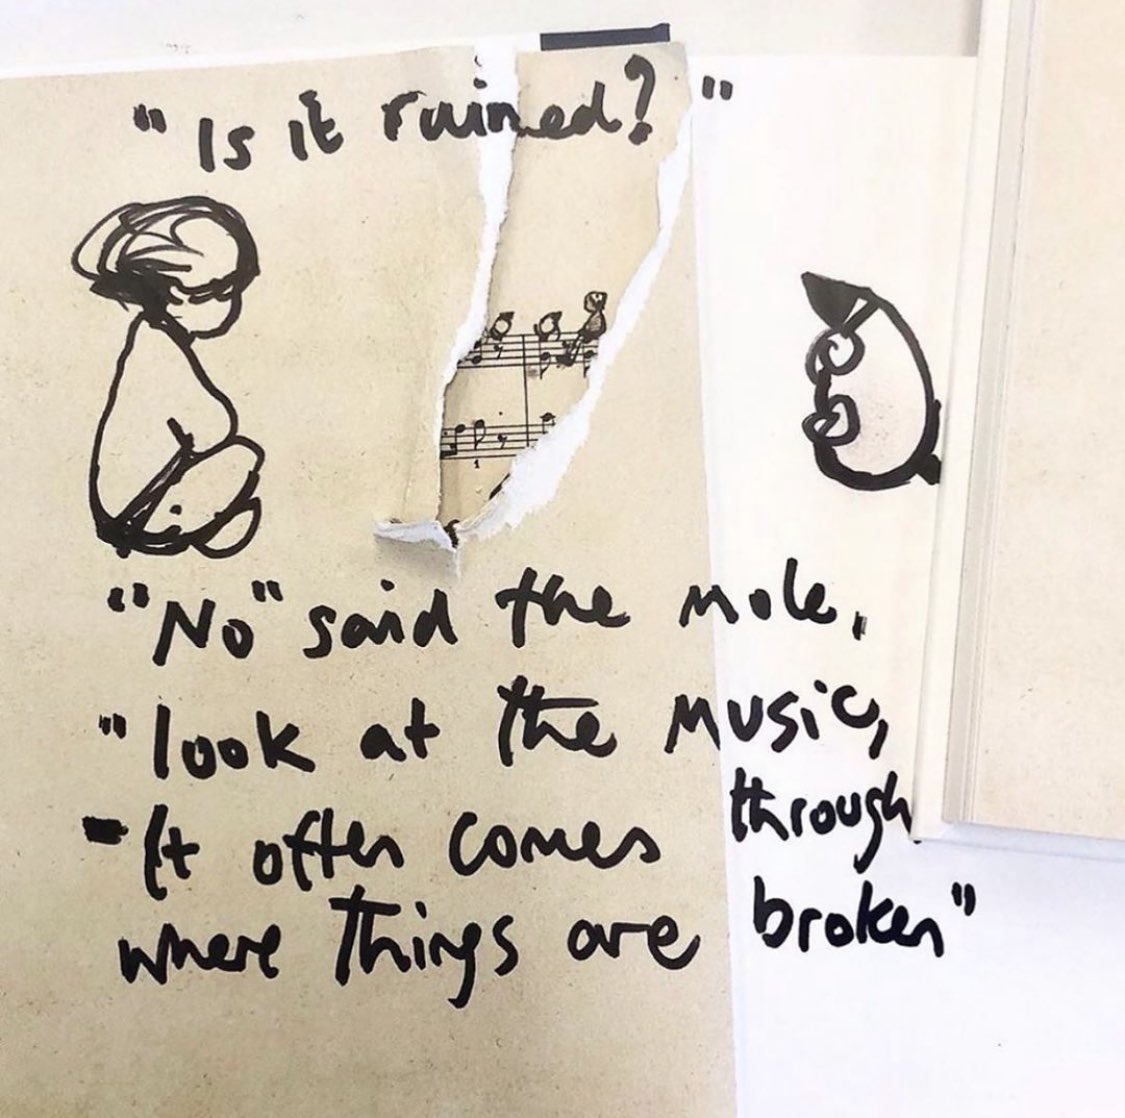 "Is it ruined?"
"No" said the mole,
"look at the music,
- It often comes through
where things are broken"